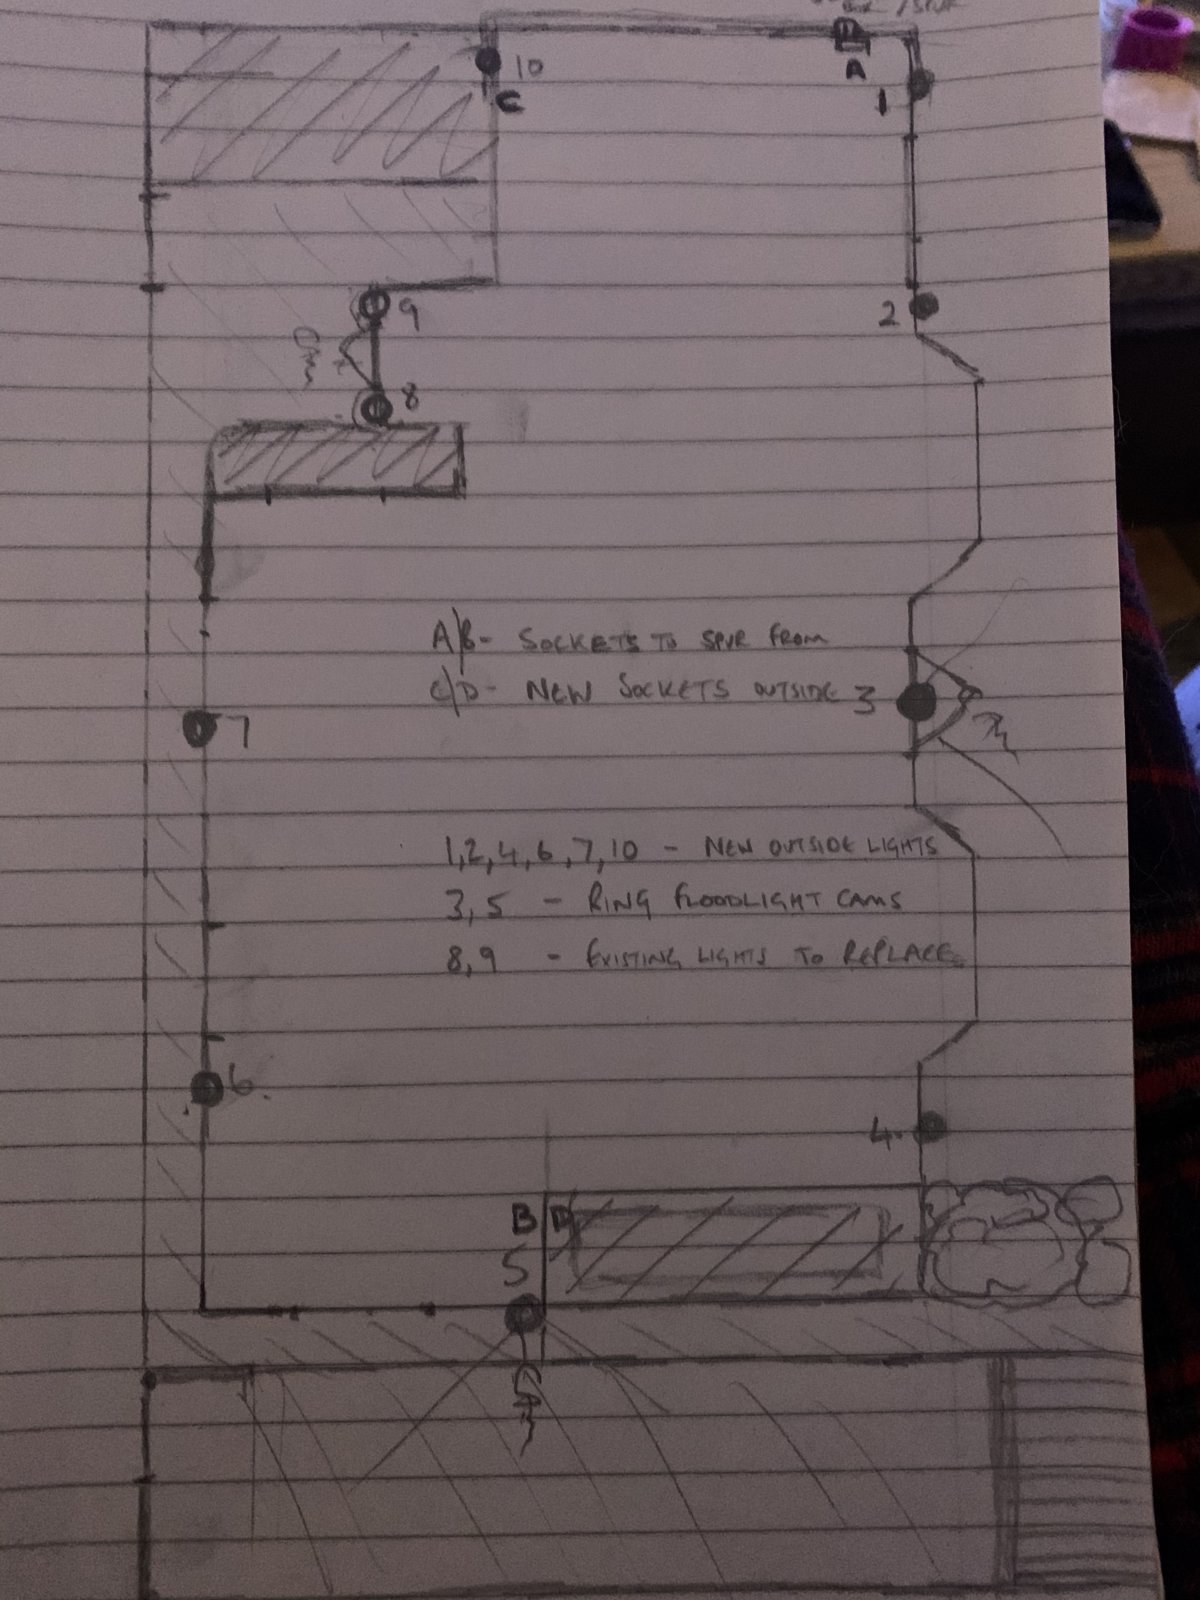 10
C
A
1
2
9
8
A/B- SOCKETS TO SPUR FROM
C/D- NEW SOCKETS OUTSIDE
3
7
1,2,4,6,7,10 - NEW OUTSIDE LIGHTS
3,5 - RING FLOODLIGHT CAMS
8,9 - EXISTING LIGHTS TO REPLACE
6
4
B D
5